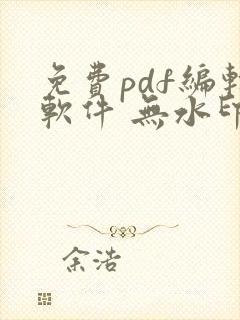 免費pdf編輯
軟件 無水印
余浩